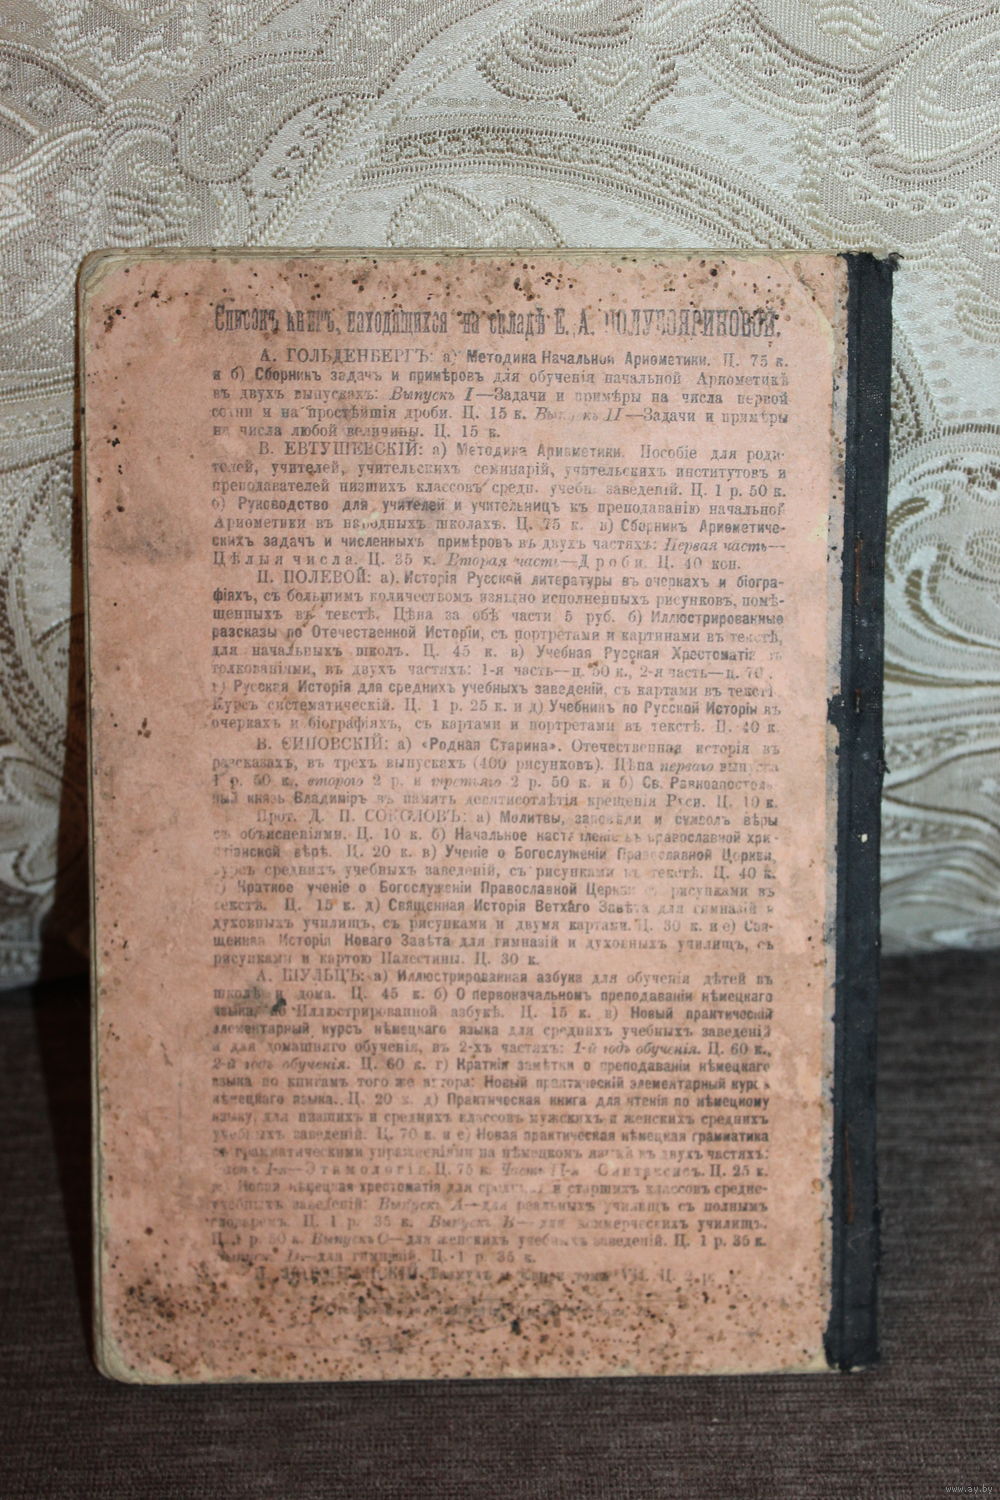 Списокъ книгъ, находящихся на складѣ Е. А. ПОЛУБОЯРИНОВОЙ.
А. ГОЛЬДЕНБЕРГЪ: а) Методика Начальной Ариѳметики. Ц. 75 к.
и б) Сборникъ задачъ и примѣровъ для обученія начальной Ариѳметикѣ
въ двухъ выпускахъ: Выпускъ I—Задачи и примѣры на числа первой
сотни и на простѣйшія дроби. Ц. 15 к. Выпускъ II—Задачи и примѣры
на числа любой величины. Ц. 15 к.
В. ЕВТУШЕВСКІЙ: а) Методика Ариѳметики. Пособіе для роди-
телей, учителей, учительскихъ семинарій, учительскихъ институтовъ и
преподавателей низшихъ классовъ средн. учебн. заведеній. Ц. 1 р. 50 к.
б) Руководство для учителей и учительницъ къ преподаванію начальной
Ариѳметики въ народныхъ школахъ. Ц. 75 к. в) Сборникъ Ариѳметиче-
скихъ задачъ и численныхъ примѣровъ въ двухъ частяхъ: Первая часть—
Цѣлыя числа. Ц. 35 к. Вторая часть—Дроби. Ц. 40 коп.
П. ПОЛЕВОЙ: а). Исторія Русской литературы въ очеркахъ и біогра-
фіяхъ, съ большимъ количествомъ изящно исполненныхъ рисунковъ, помѣ-
щенныхъ въ текстѣ. Цѣна за обѣ части 5 руб. б) Иллюстрированные
разсказы по Отечественной Исторіи, съ портретами и картинами въ текстѣ,
для начальныхъ школъ. Ц. 45 к. в) Учебная Русская Хрестоматія съ
толкованіями, въ двухъ частяхъ: 1-я часть—ц. 50 к., 2-я часть—ц. 70
г) Русская Исторія для среднихъ учебныхъ заведеній, съ картами въ текстѣ.
Курсъ систематическій. Ц. 1 р. 25 к. и д) Учебникъ по Русской Исторіи въ
очеркахъ и біографіяхъ, съ картами и портретами въ текстѣ. Ц. 40 к.
В. СИПОВСКІЙ: а) «Родная Старина». Отечественная исторія въ
разсказахъ, въ трехъ выпускахъ (400 рисунковъ). Цѣна перваго выпуска
1 р. 50 к., второго 2 р. и третьяго 2 р. 50 к. и б) Св. Равноапостоль-
ный князь Владиміръ въ память десятисотлѣтія крещенія Руси. Ц. 10 к.
Прот. Д. П. СОКОЛОВЪ: а) Молитвы, заповѣди и символъ вѣры
съ объясненіями. Ц. 10 к. б) Начальное наставленіе въ православной хри-
стіанской вѣрѣ. Ц. 20 к. в) Ученіе о Богослуженіи Православной Церкви,
курсъ среднихъ учебныхъ заведеній, съ рисунками въ текстѣ. Ц. 40 к.
г) Краткое ученіе о Богослуженіи Православной Церкви съ рисунками въ
текстѣ. Ц. 15 к. д) Священная Исторія Ветхаго Завѣта для гимназій и
духовныхъ училищъ, съ рисунками и двумя картами. Ц. 30 к. и е) Свя-
щенная Исторія Новаго Завѣта для гимназій и духовныхъ училищъ, съ
рисунками и картою Палестины. Ц. 30 к.
А. ШУЛЬЦЪ: а) Иллюстрированная азбука для обученія дѣтей въ
школѣ и дома. Ц. 45 к. б) О первоначальномъ преподаваніи нѣмецкаго
языка по Иллюстрированной азбукѣ. Ц. 15 к. в) Новый практическій
элементарный курсъ нѣмецкаго языка для среднихъ учебныхъ заведеній
и для домашняго обученія, въ 2-хъ частяхъ: 1-й годъ обученія. Ц. 60 к.,
2-й годъ обученія. Ц. 60 к. г) Краткія замѣтки о преподаваніи нѣмецкаго
языка по книгамъ того же автора: Новый практическій элементарный курсъ
нѣмецкаго языка. Ц. 20 к. д) Практическая книга для чтенія по нѣмецкому
языку, для низшихъ и среднихъ классовъ мужскихъ и женскихъ среднихъ
учебныхъ заведеній. Ц. 70 к. и е) Новая практическая нѣмецкая грамматика
съ грамматическими упражненіями на нѣмецкомъ языкѣ въ двухъ частяхъ:
Часть I-я—Этимологія. Ц. 75 к. Часть II-я Синтаксисъ. Ц. 25 к.
Новая нѣмецкая хрестоматія для среднихъ и старшихъ классовъ средне-
учебныхъ заведеній: Выпускъ А—для реальныхъ училищъ съ полнымъ
глоссаремъ. Ц. 1 р. 35 к. Выпускъ В—для коммерческихъ училищъ.
Ц. 1 р. 50 к. Выпускъ С—для женскихъ учебныхъ заведеній. Ц. 1 р. 35 к.
Выпускъ D—для гимназій. Ц. 1 р. 35 к.
Ц. 2 р.
www.ay.by